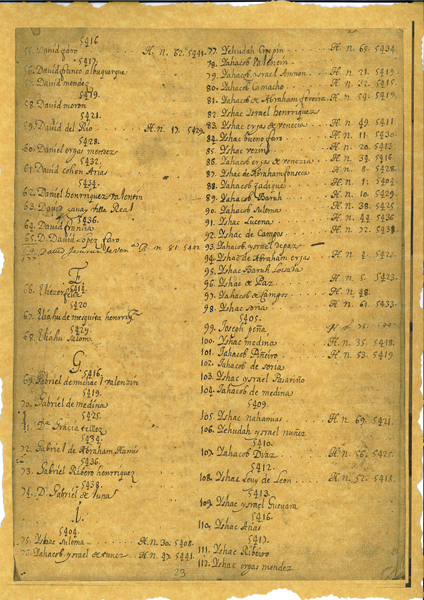 5416
55. David faro . . . H. n. 82. 5441.
5417.
56. David franco albuquerque
57. David mendez
5419.
58. David moron
5421.
59. David del Rio . . . . H. n. 17. 5429
5428.
60. David ergas
5432.
61. David cohen Arias
5434.
62. Daniel henrriquez valentin
63. David Real
5436.
64. David
65. D. David Lopez faro
David H. n. 81. 5402
E
5414.
66. Eliezer
5420
67. Eliahu de mesquita henrriqz
5429.
68. Eliahu Salom.
G.
5416.
69. Gabriel de michael valenzin
5419.
70. Gabriel de medina
5425.
71. Da Gracia tellez
5434.
72. Gabriel de Abraham
5436.
73. Gabriel Ribero henrriquez
5438.
74. D. Gabriel de luna
I.
5404.
75. Ishac Sulema . . . H. n. 30. 5408.
76. Yahacob ysrael de nunez . . H. n. 47. 5441.
77. Yehudah Crespin . . . H. n. 65. 5434.
78. Yahacob Valencin
79. Yahacob ysrael Annon . H. n. 21. 5419.
80. Yahacob Camacho . . . H. n. 32. 5415.
81. Yahacob de Abraham fereira . H. n. 54. 5419.
82. Yshac Israel henrriquez
83. Yshac ergas de venecia . . H. n. 49. 5411.
84. Yshac bueno faro . . . H. n. 11. 5430.
85. Yshac vezino . . . H. n. 20. 5413.
86. Yahacob ergas de venezia . H. n. 34. 5416.
87. Yshac de Abraham fonseca . H. n. 8. 5428.
88. Yahacob gadique . . . H. n. 1. 5404.
89. Yahacob Baruh . . . H. n. 10. 5429.
90. Yahacob Sulema . . . H. n. 38. 5425.
91. Yshac Lucena . . . H. n. 44. 5436.
92. Yshac de Campos . . . H. n. 72. 5438.
93. Yahacob ysrael de paz
94. Yshac de Abraham ergas . H. n. 4. 5422.
95. Yshac Baruh Lousada
96. Yshac de Paz . . . H. n. 5. 5423.
97. Yahacob de Campos . . . H. n. 48.
98. Yshac de soria . . . H. n. 61. 5433.
5405.
99. Joseph peña
100. Yshac medina . . . H. n. 35. 5418.
101. Yahacob Piñeiro . . . H. n. 53. 5419.
102. Yahacob de soria
103. Yshac ysrael Passariño
104. Yahacob de medina
5409.
105. Yshac nahamias . . . H. n. 69. 5421.
106. Yehudah ysrael nuñez
5410.
107. Yahacob Diaz . . . H. n. 56. 5425.
5412.
108. Yshac Levy de Leon . . . H. n. 52. 5418.
5413.
109. Yshac ysrael Guevara
5416.
110. Yshac Arias
5417.
111. Yshac Ribeiro
112. Yshac ergas mendez
23